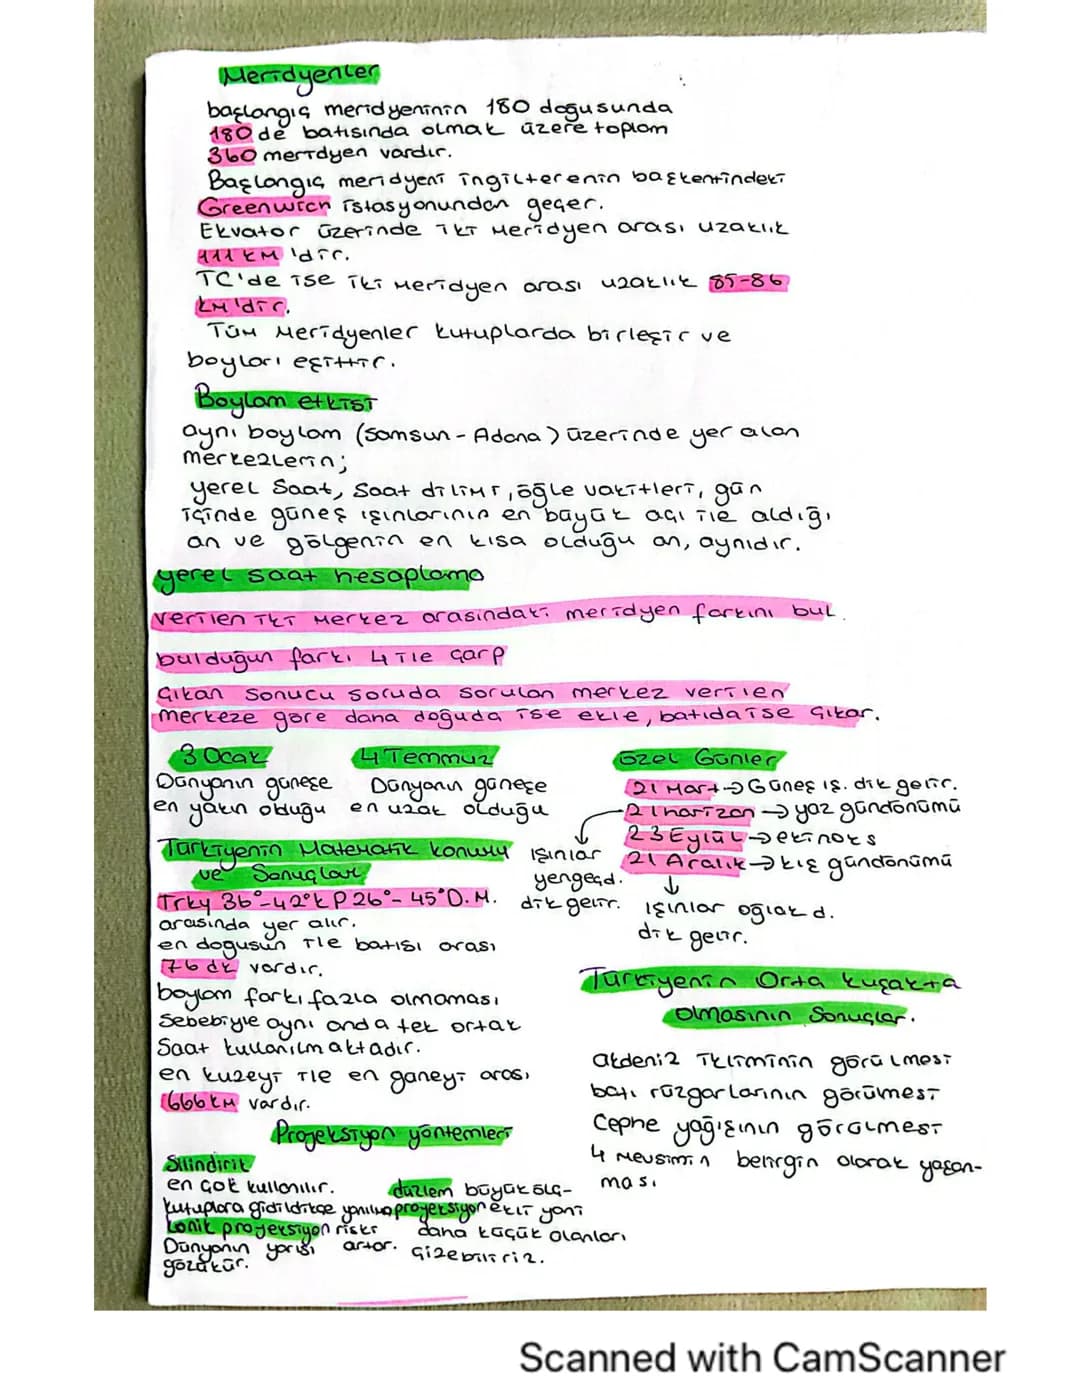 Meridyenler
başlangıç meridyeninin 180 doğusunda
180 de batısında olmak üzere toplam
360 meridyen vardır.
Başlangıç meridyeni ingilterenin başkentindeki
Greenwich istasyonundan geçer.
Ekvator üzerinde iki Meridyen arası uzaklık
111 KM 'dir.
TC'de ise iki Meridyen arası uzaklık 85-86
KM'dir.
Tüm Meridyenler kutuplarda birleşir ve
boyları eşittir.
Boylam etkisi
aynı boylam (Samsun-Adana) üzerinde yer alan
merkezlerin;
yerel Saat, Saat dilimi, öğle vakitleri, gün
içinde güneş ışınlarının en büyük açı ile aldığı
an ve gölgenin en kısa olduğu an, aynıdır.
yerel saat hesaplama
verilen iki Merkez arasındaki meridyen farkını bul.
bulduğun farkı 4 ile çarp
Çıkan sonucu soruda sorulan merkez verilen
merkeze göre daha doğuda ise ekle, batıda ise çıkar.
3 Ocak
Dünyanın güneşe
en yakın olduğu
4 Temmuz
Dünyanın güneşe
en uzak olduğu
Özel Günler
21 Mart → Güneş ış. dik gelir.
21 haziran → yaz gündönümü
23 Eylül → ekinoks
21 Aralık → kış gündönümü
Işınlar
yengeçd.
dik gelir.
Işınlar oğlak d.
dik gelir.
Türkiyenin Matematik konumu
ve Sonuçları
Trky 36°-42° KP 26°-45° D.M.
arasında yer alır.
en doğusun ile batısı arası
76 dk vardır.
boylam farkı fazla olmaması
Sebebiyle aynı anda tek ortak
Saat kullanılmaktadır.
en kuzeyi ile en güneyi arası
666 KM vardır.
Türkiyenin Orta kuşakta
olmasının Sonuçlar.
akdeniz ikliminin görülmesi
batı rüzgarlarının görülmesi
Cephe yağışının görülmesi
4 Mevsimin belirgin olarak yaşan-
ması
Projeksiyon yöntemleri
Silindirik
en çok kullanılır.
kutuplara gidildikçe yanılma
riski
artar.
konik projeksiyon
Dünyanın yarısı
gözükür.
düzlem büyük ölç-
projeksiyon ekli yani
daha küçük olanları
çizebiliriz.
Scanned with CamScanner